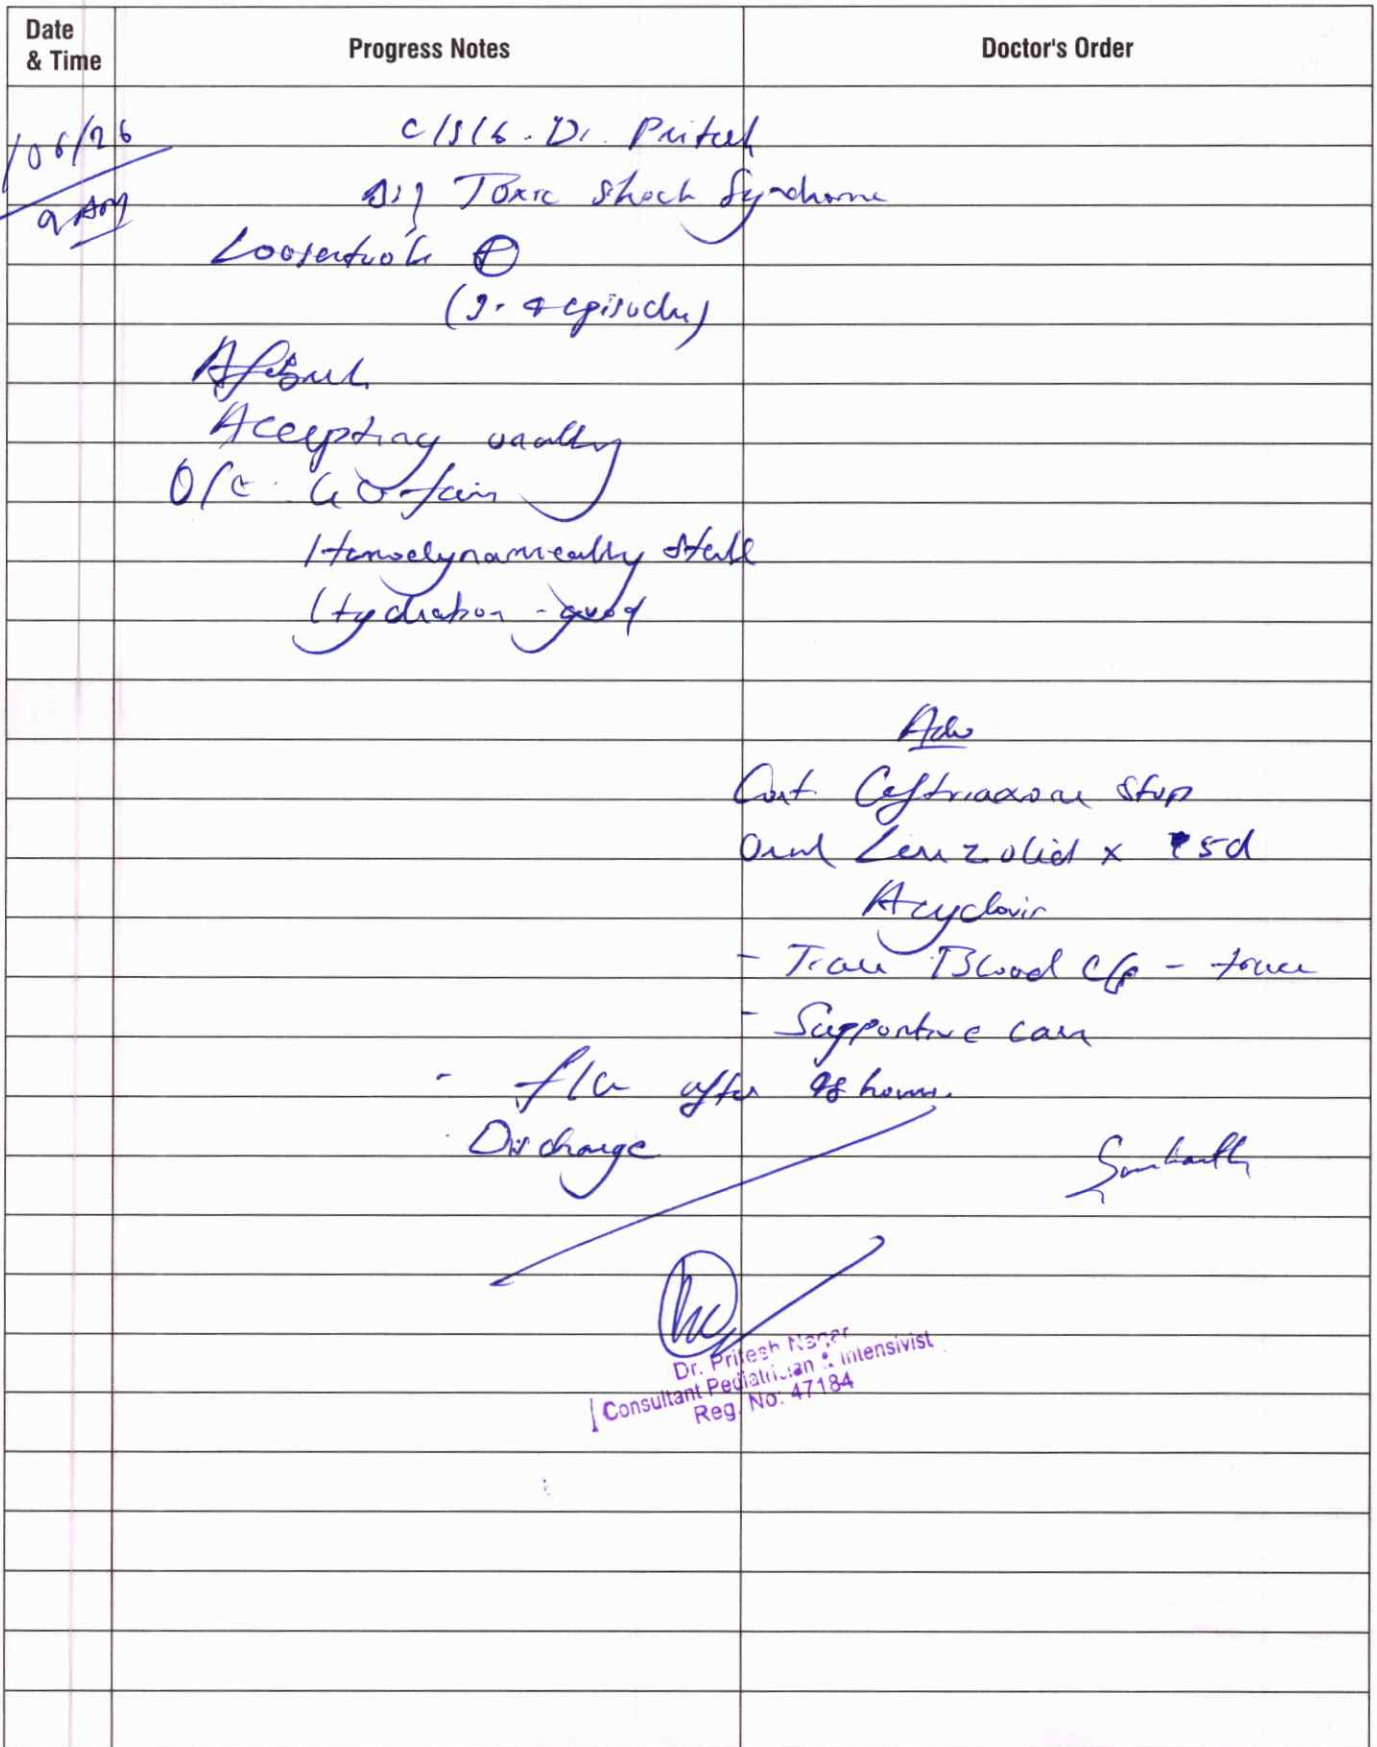 Date
& Time
Progress Notes
Doctor's Order
/06/26
9 AM
c/s/b. Dr. Pritesh
Toxic shock Syndrome
Loosestools ⊕
(3-4 episodes)
Afebrile
Accepting orally
O/E. GC-fair
Hemodynamically stable
Hydration - good
Adv
Cont. Ceftriaxone stop
Oral Linezolid x 5d
Acyclovir
- Trace Blood c/s - trace
- Supportive care
- f/u after 48 hours.
. Discharge
Dr. Pritesh Nagar
Consultant Pediatrician & Intensivist
Reg. No: 47184